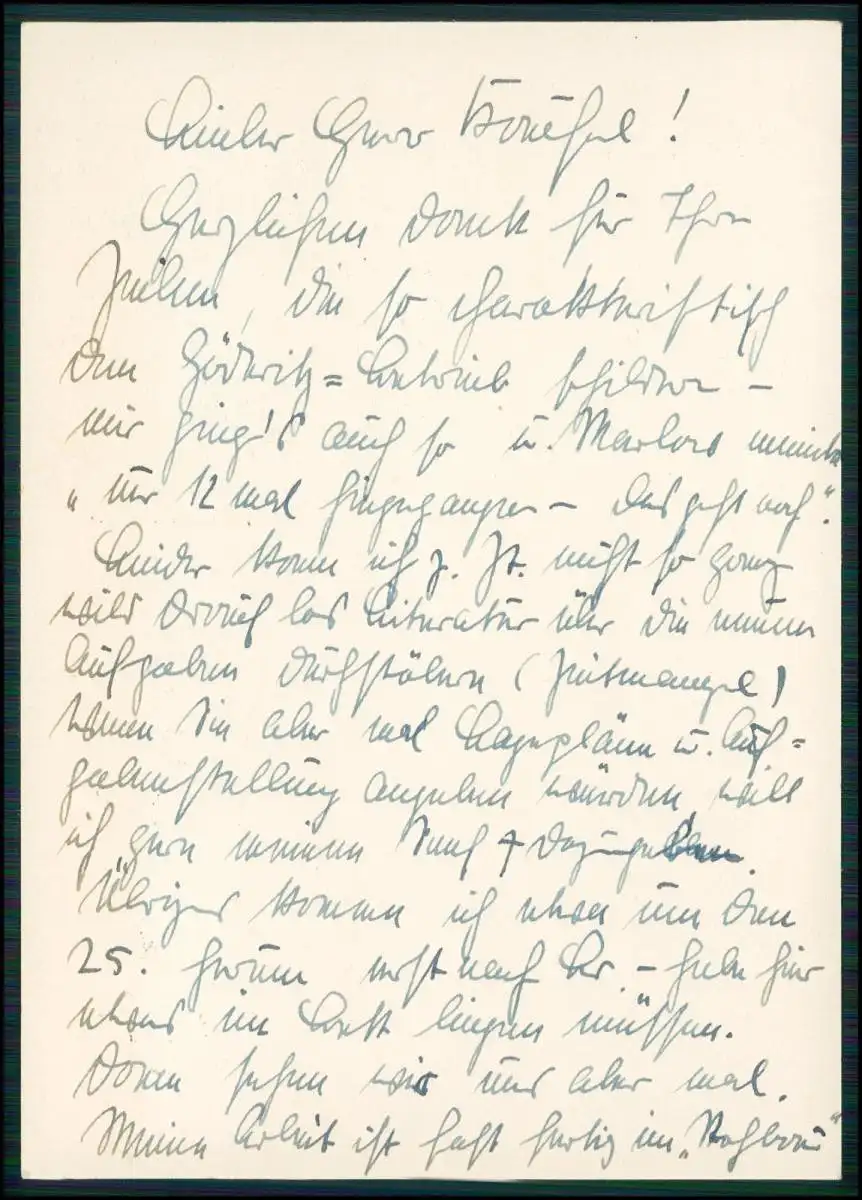 Lieber Herr
Herzlichen Dank für Ihre
Zeilen, die so charakteristisch
den Göderitz=Betrieb schildern –
mir ging's auch so u. meinte
„nur 12 mal hingegangen – das geht noch".
Leider kann ich z. Zt. nicht so ganz
wild drauf los Literatur über die neuen
Aufgaben durchstöbern (Zeitmangel)
wenn Sie aber mal Lagepläne u. Auf=
gabenstellung angeben würden, will
ich gern meinen Senf dazugeben.
Übrigens komme ich etwa um den
25. herum erst nach Br. – habe hier
etwas im Bett liegen müssen.
Dann sehen wir uns aber mal.
Meine Arbeit ist fast fertig im „Rohbau"